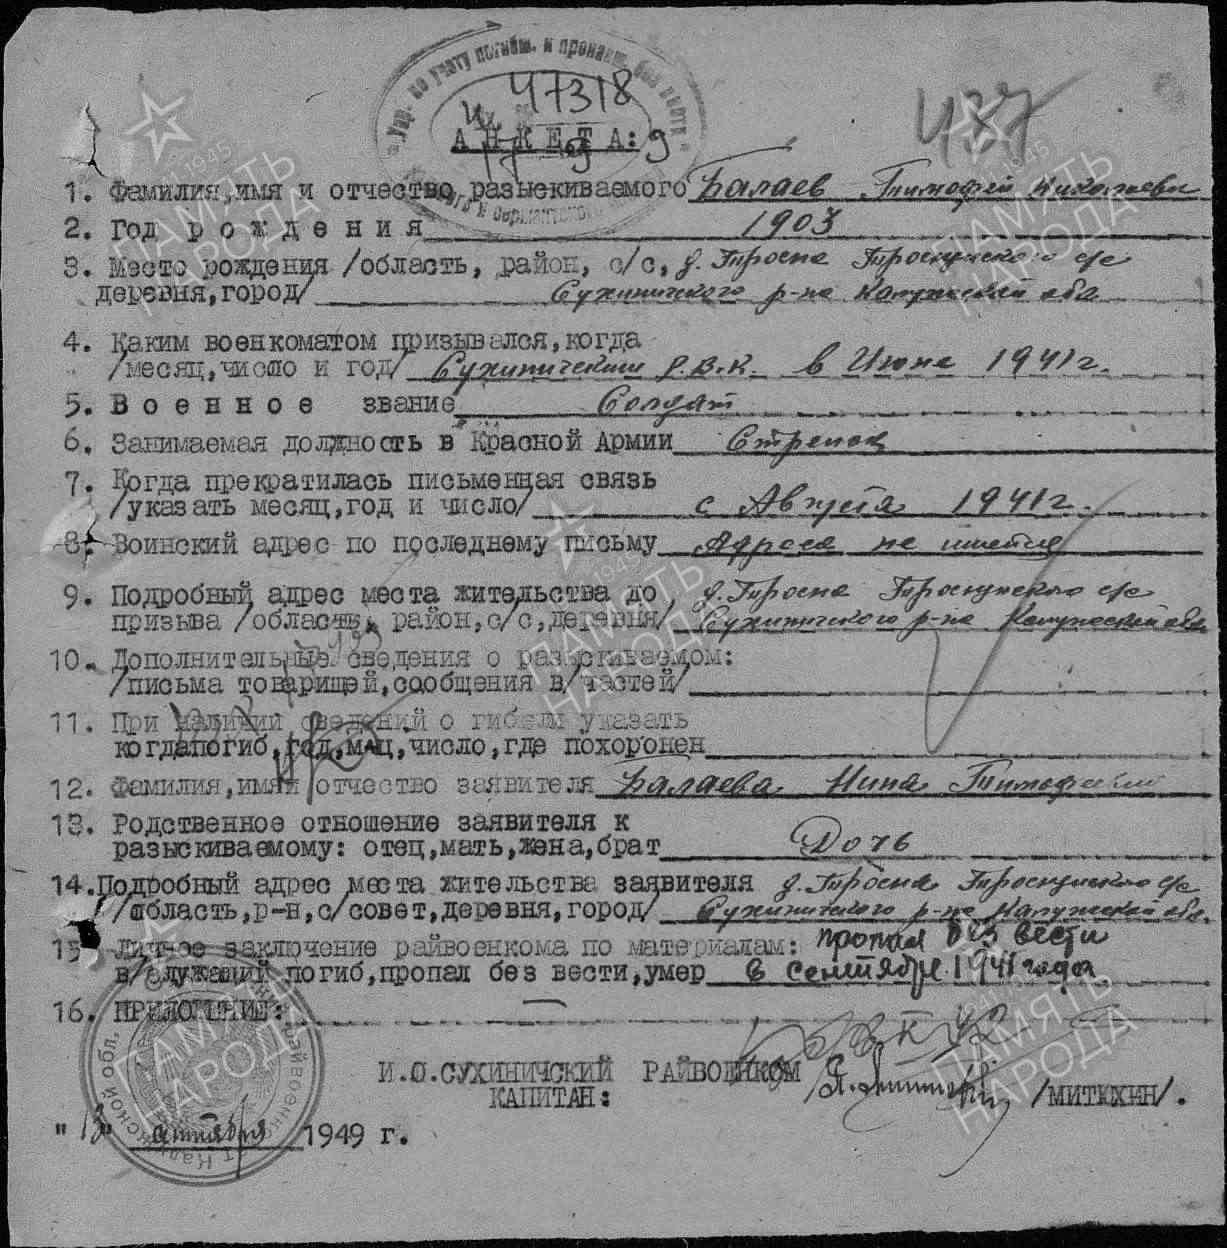 Упр. по учету погибш. и пропавш. без вести
47318
437
АНКЕТА:
1. Фамилия,имя и отчество разыскиваемого Балаев Тимофей Николаеви
2. Год рождения 1903
3. Место рождения /область, район, с/с, д. Тросна Троснянского с/с
деревня,город/ Сухиничского р-на Калужской обл
4. Каким военкоматом призывался,когда
/месяц,число и год/ Сухиническим Р.В.К. в Июне 1941г.
5. Военное звание Солдат
6. Занимаемая должность в Красной Армии Стрелок
7. Когда прекратилась письменная связь
/указать месяц,год и число/ с Августа 1941г.
8. Воинский адрес по последнему письму Адреса не имеется
9. Подробный адрес места жительства до д. Тросна Троснянского с/с
призыва /область, район,с/с,деревня/ Сухиничского р-на Калужской обл
10. Дополнительные сведения о разыскиваемом:
/письма товарищей,сообщения в/частей/
11. При наличии сведений о гибели указать
когдапогиб,год,м-ц,число,где похоронен
12. Фамилия,имяи отчество заявителя Балаева Нина Тимофеевна
13. Родственное отношение заявителя к
разыскиваемому: отец,мать,жена,брат Дочь
14.Подробный адрес места жительства заявителя д. Тросна Троснянского с/с
/область,р-н,с/совет,деревня,город/ Сухиничского р-на Калужской обл.
15 Личное заключение райвоенкома по материалам: пропал без вести
в/служащий погиб,пропал без вести,умер в сентябре 1941 года
16. ПРИЛОЖЕНИЕ: —
И.О.СУХИНИЧСКИЙ РАЙВОЕНКОМ
КАПИТАН: /МИТЮХИН/.
" " октября 1949 г.
ПАМЯТЬ НАРОДА